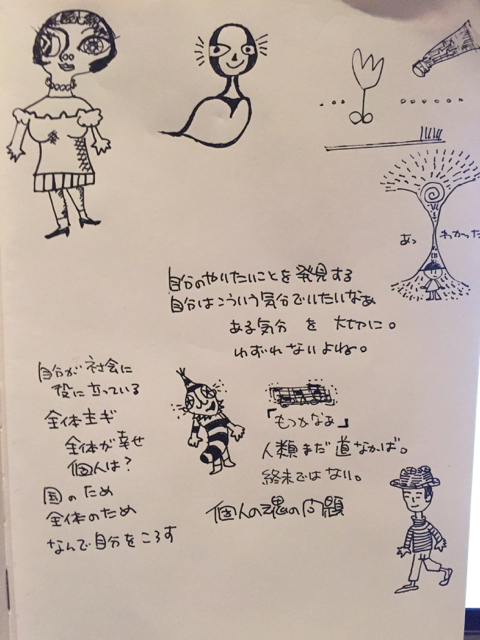 あっ わかった
自分のやりたいことを発見する
自分はこういう気分でいたいなあ
ある気分 を 大切に。
わすれないよね。
自分が社会に
役に立っている
全体主ギ
全体が幸せ
個人は?
国のため
全体のため
なんで自分をころす
人類まだ道なかば。
終末ではない。
個人の魂の問題